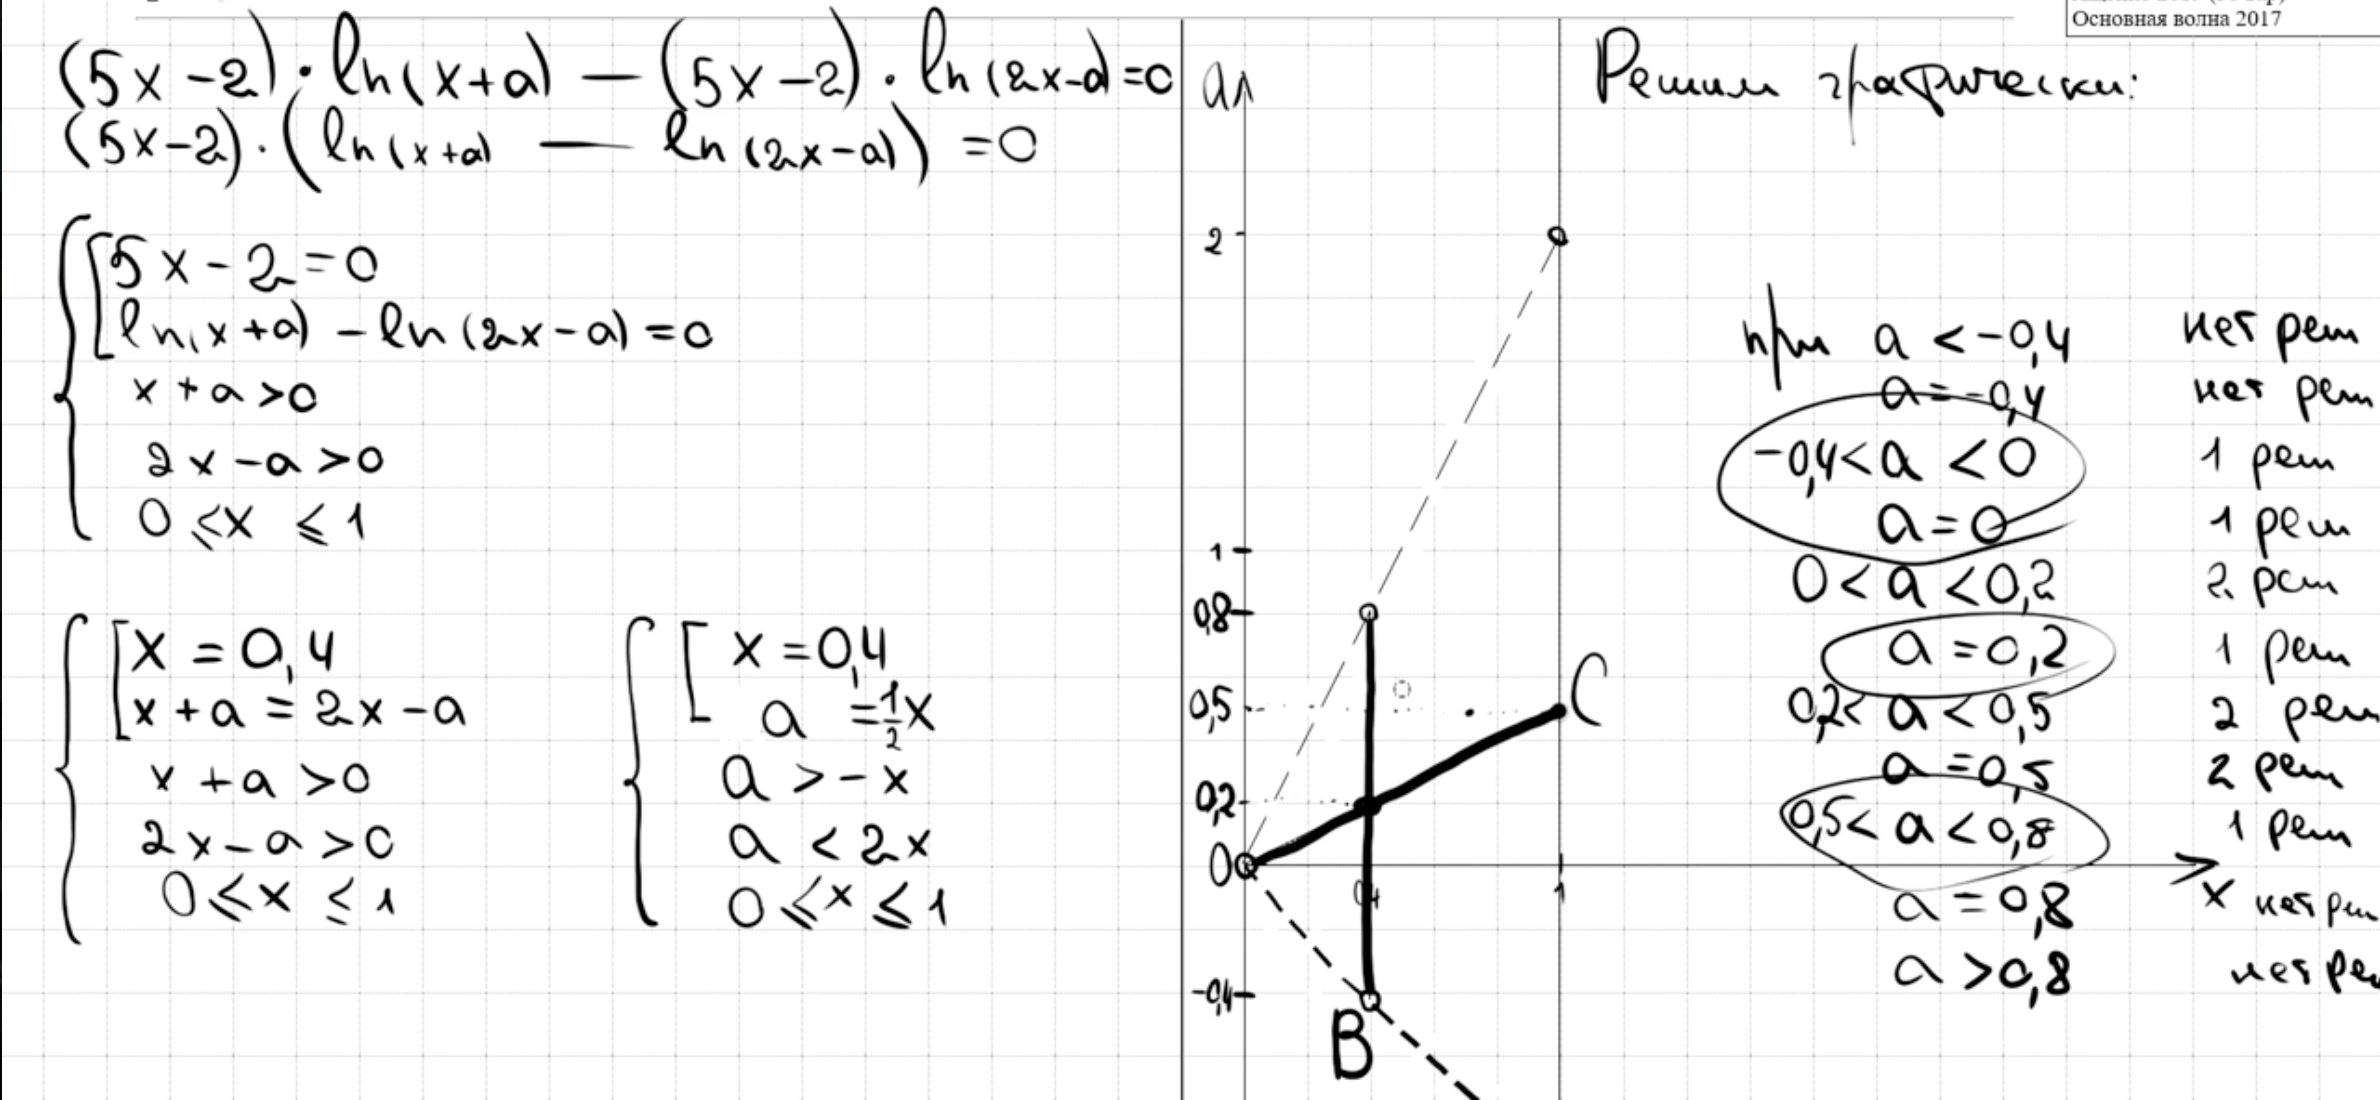 Основная волна 2017
(5x-2)·ln(x+a) - (5x-2)·ln(2x-a)=0
(5x-2)·(ln(x+a) - ln(2x-a))=0
5x-2=0
ln(x+a) - ln(2x-a)=0
x+a>0
2x-a>0
0≤x≤1
x=0,4
x+a=2x-a
x+a>0
2x-a>0
0≤x≤1
x=0,4
a=1/2x
a>-x
a<2x
0≤x≤1
a
2
1
0,8
0,5
0,2
0
-0,4
0,4
1
x
B
C
Решим графически:
при a<-0,4 нет реш
a=-0,4 нет реш
-0,4<a<0 1 реш
a=0 1 реш
0<a<0,2 2 реш
a=0,2 1 реш
0,2<a<0,5 2 реш
a=0,5 2 реш
0,5<a<0,8 1 реш
a=0,8 нет реш
a>0,8 нет ре